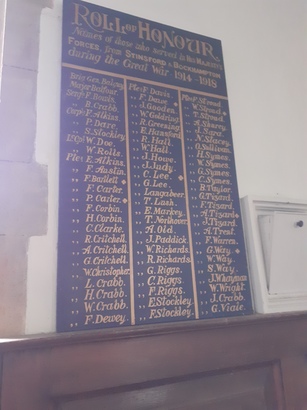 ROLL OF HONOUR
Names of those who served in His Majesty's
Forces, from STINSFORD & BOCKHAMPTON
during the Great War 1914-1918
Major Balfour.
Sergt F. Beazis.
" B. Crabb.
Corpl F. Atkins.
" P. Dare.
" S. Stockley.
L/Cpl W. Doe.
" W. Rolls.
Pte E. Atkins.
" F. Austin.
" F. Bullett
" F. Carter.
" P. Carter.
" F. Corbin.
" H. Corbin.
" C. Clarke.
" R. Critchell.
" A. Critchell.
" G. Critchell.
" W. Christopher.
" L. Crabb.
" H. Crabb.
" W. Crabb.
" F. Dewey
Pte F. Davis.
" F. Dawe.
" J. Gooden
" W. Golding
" R. Greening
" E. Hansford
" R. Hall.
" W. Hall.
" J. Howe.
" J. Lady.
" C. Lee.
" G. Lee.
" Langabeer
" T. Lush.
" E. Markey.
" T. Northover
" A. Old.
" J. Paddick.
" W. Richards.
" R. Richards.
" G. Riggs.
" C. Riggs.
" F. Riggs.
" E. Stockley.
" F. Stockley.
Pte F. Stroud.
" W. Stroud.
" T. Stroud.
" H. Symes.
" W. Symes.
" G. Symes.
" C. Symes.
" B. Taylor
" G. Tizard.
" F. Tizard.
" A. Tizard.
" O. Tizard.
" A. Treat.
" F. Warren.
" G. Way.
" W. Way.
" S. Way.
" J. Whayman.
" W. Wright.
" J. Crabb.
" G. Viale.